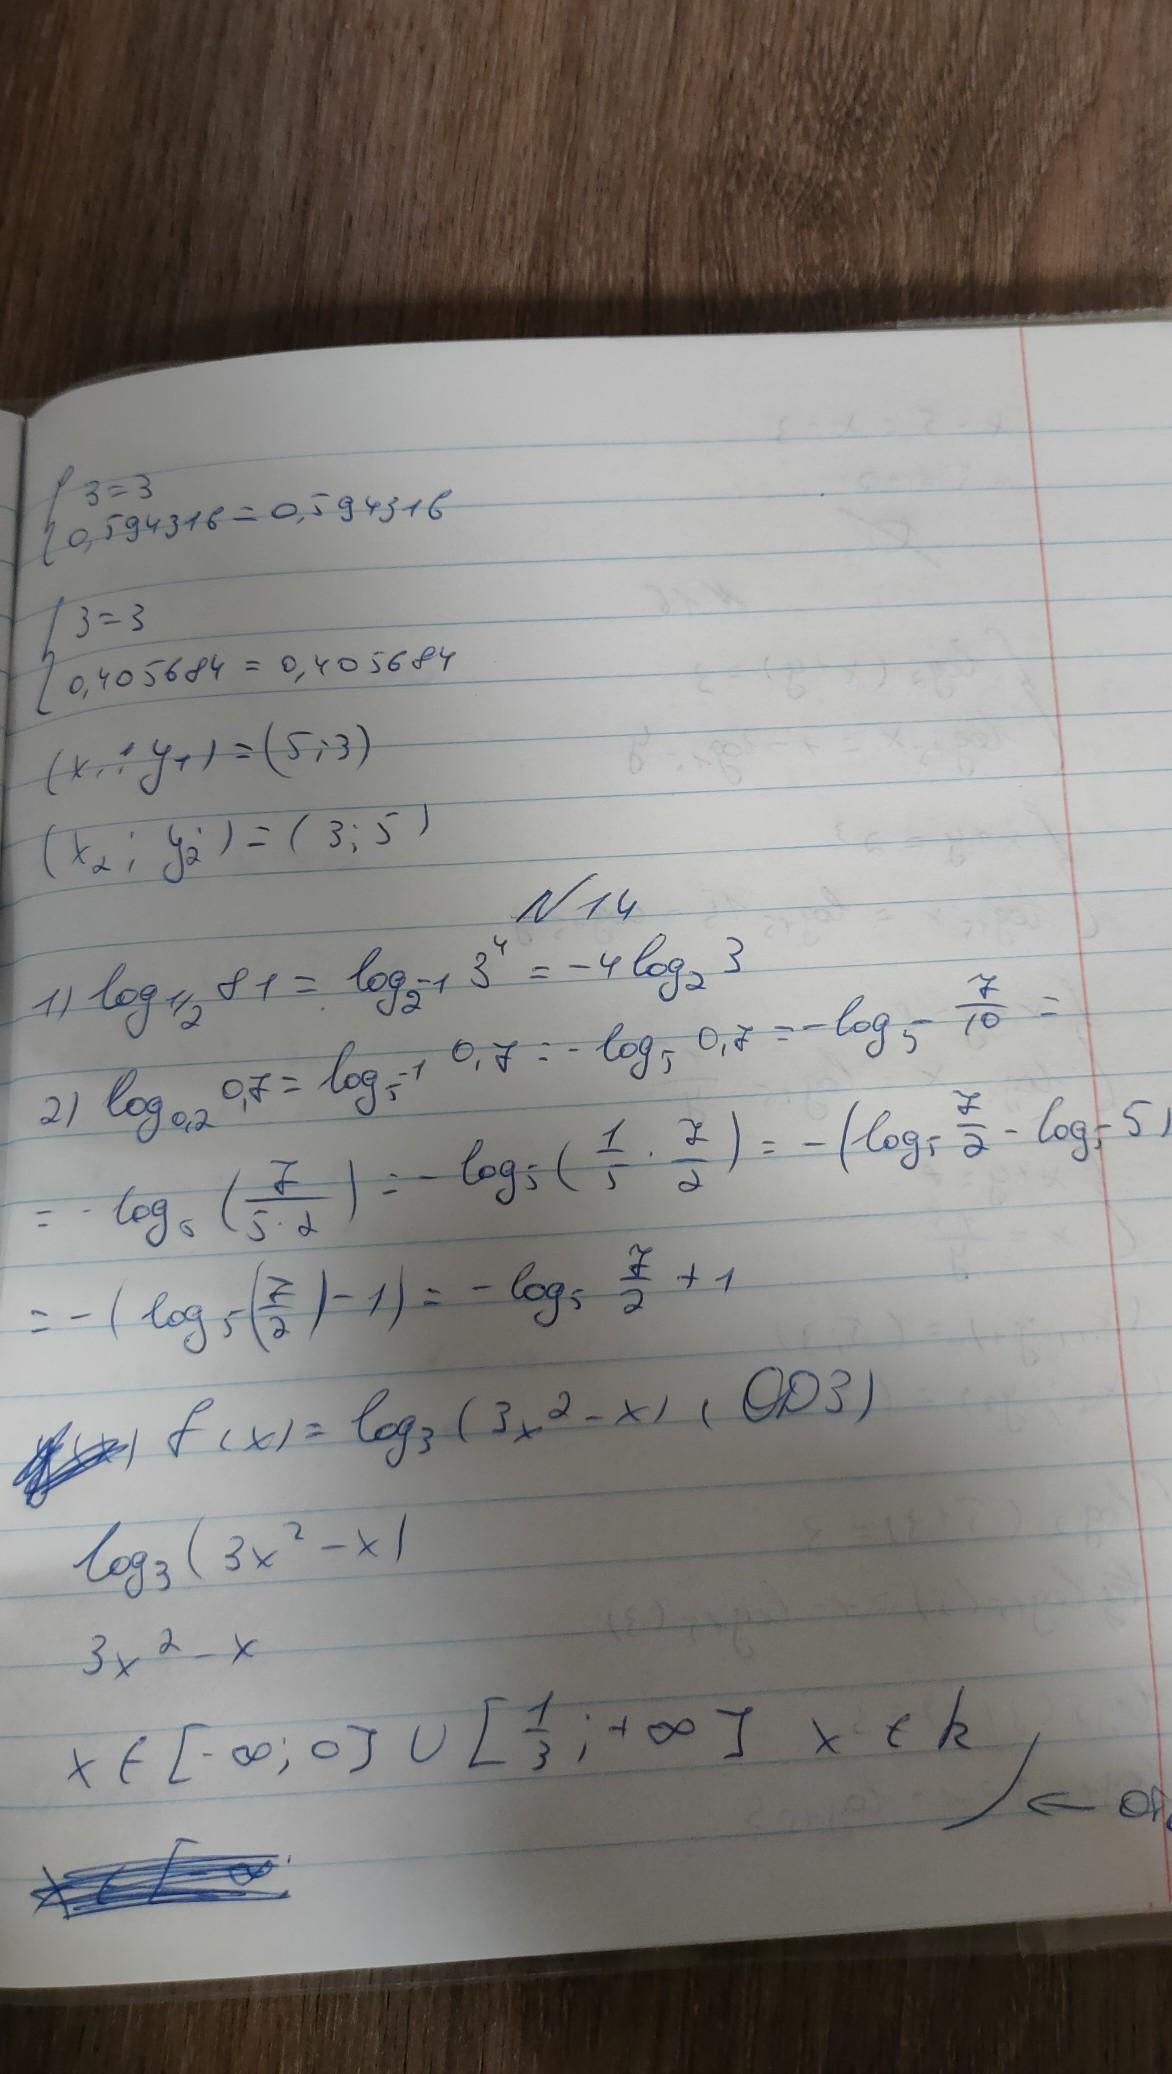 { 3=3
0,594316 = 0,594316
{ 3=3
0,405684 = 0,405684
(x₁; y₁) = (5;3)
(x₂; y₂) = (3; 5)
N 14
1) log_{1/2} 81 = log_{2^{-1}} 3⁴ = -4 log₂ 3
2) log_{0,2} 0,7 = log_{5^{-1}} 0,7 = -log₅ 0,7 = -log₅ 7/10 =
= - log₅ (7/(5·2)) = - log₅ (1/5 · 7/2) = -(log₅ 7/2 - log₅ 5)
= -(log₅(7/2) - 1) = -log₅ 7/2 + 1
f(x) = log₃(3x² - x), ОДЗ)
log₃(3x² - x)
3x² - x
x ∈ [-∞; 0] ∪ [1/3; +∞] x ∈ k
←